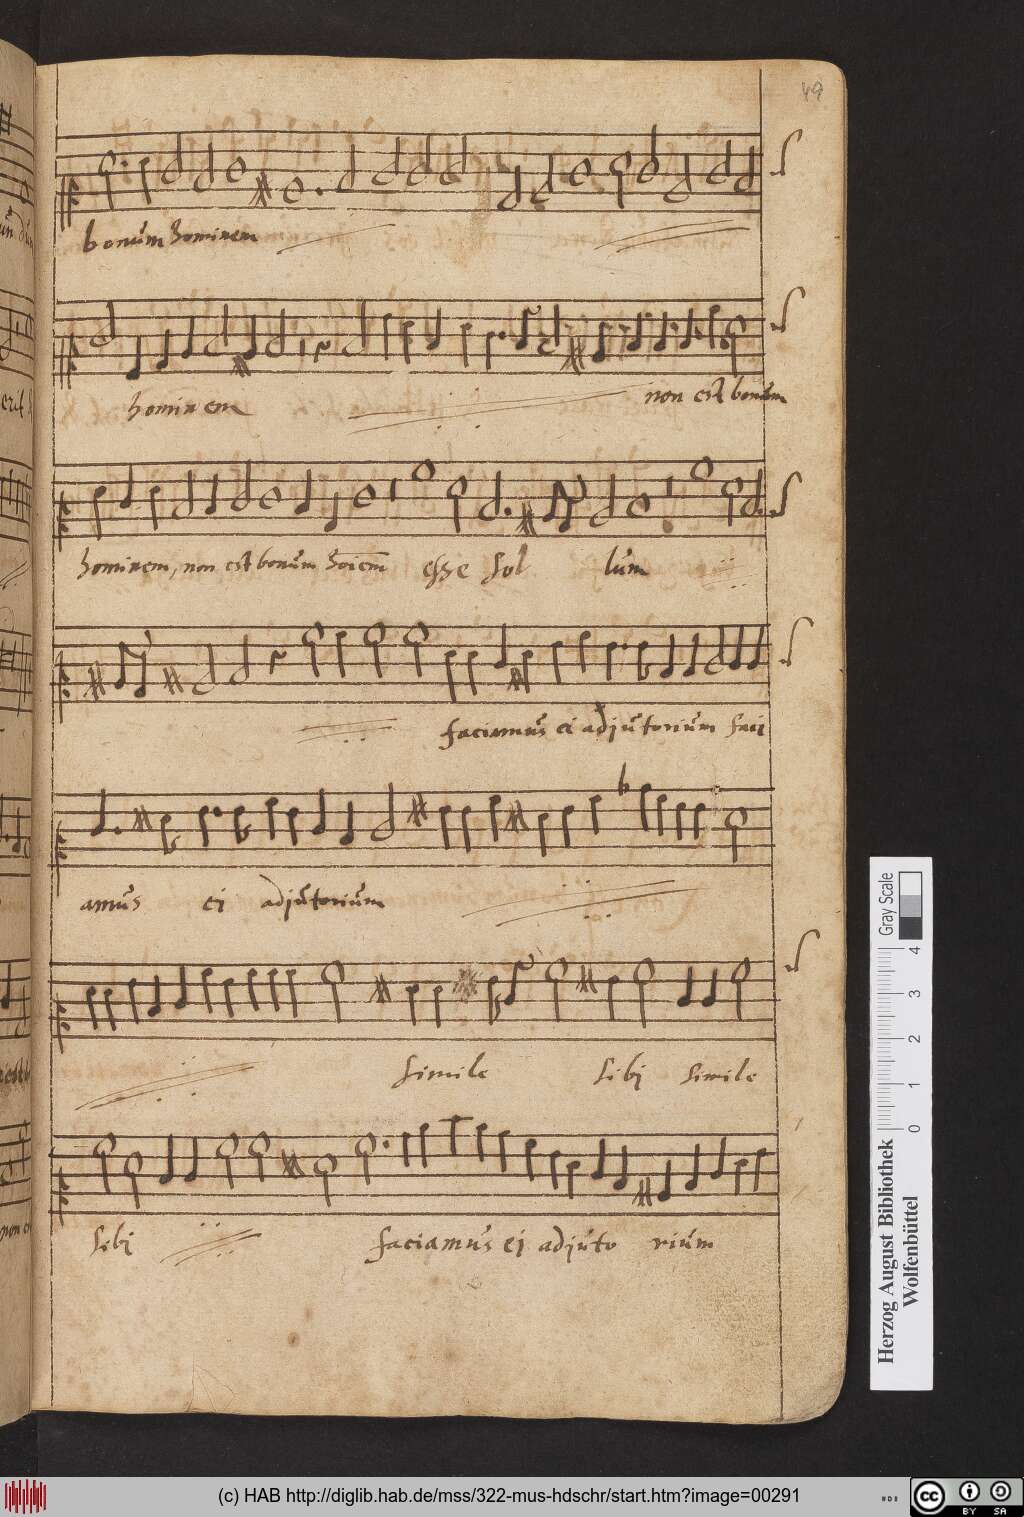 49
bonum hominem
hominem non est bonum
hominem, non est bonum hoiem esse sol lum
faciamus ei adjutorium faci
amus ei adjutorium
simile sibj simile
sibj faciamus ej adjuto rium
Gray Scale
0 1 2 3 4
Herzog August Bibliothek
Wolfenbüttel
(c) HAB http://diglib.hab.de/mss/322-mus-hdschr/start.htm?image=00291
cc BY SA